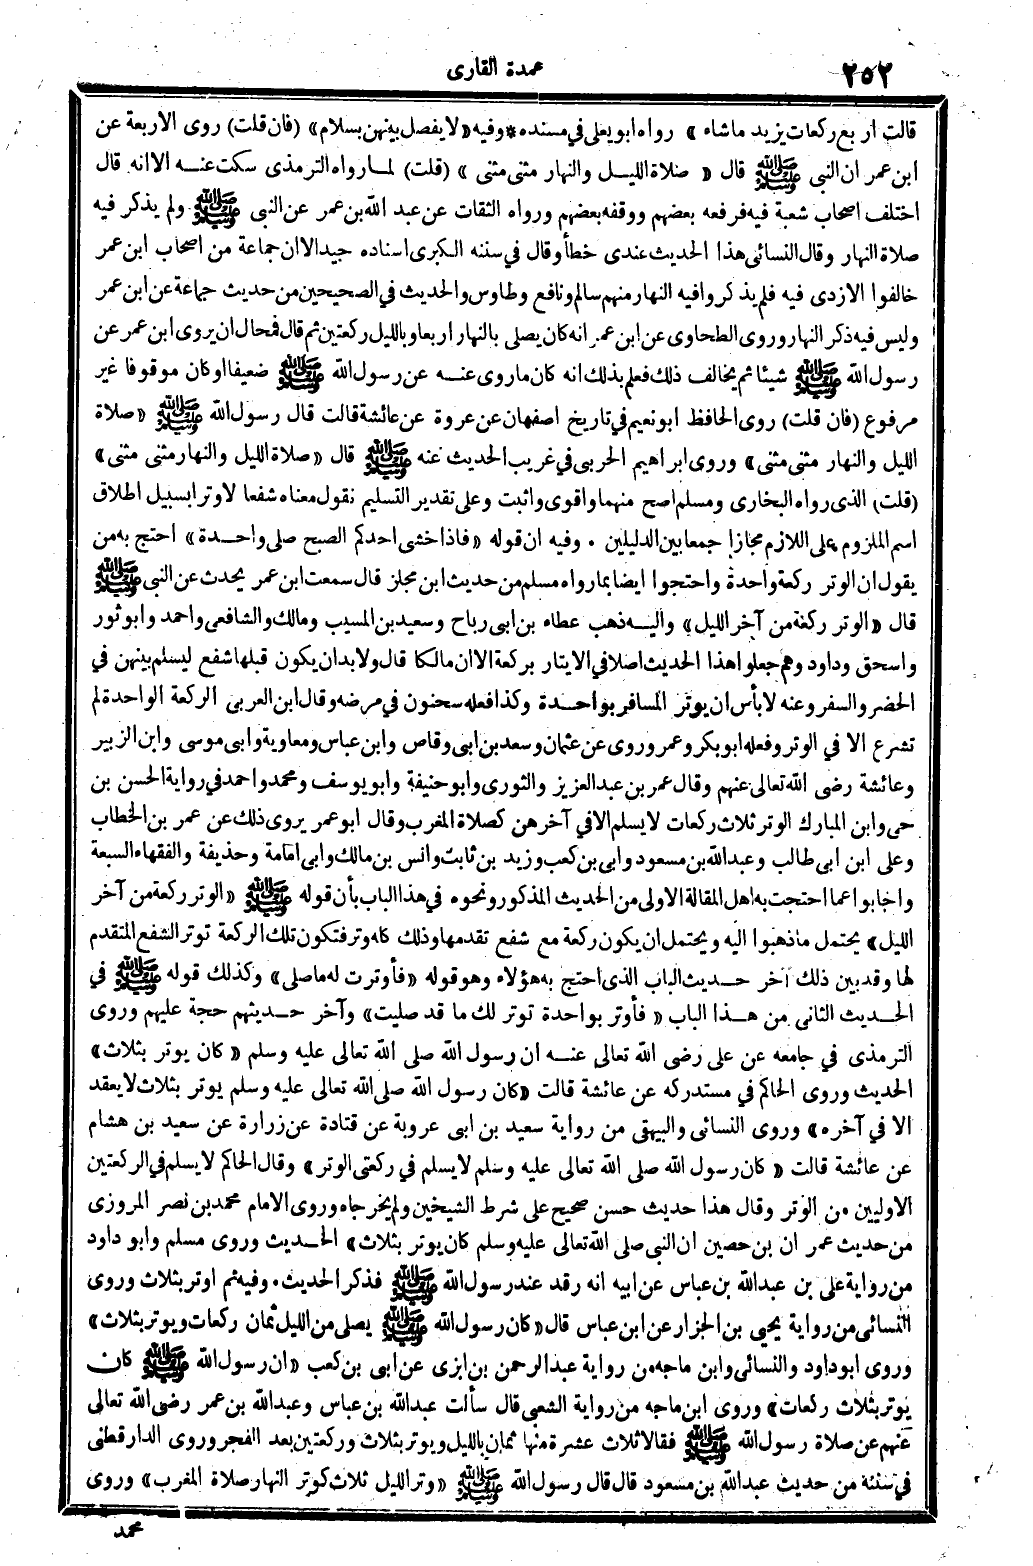 ٢٥٢
عمدة القارى
قالت اربع ركعات يزيد ماشاء » رواه ابو يعلى فى مسنده * وفيه « لا يفصل بينهن بسلام » (فان قلت) روى الاربعة عن
ابن عمر ان النبى ﷺ قال « صلاة الليل والنهار مثنى مثنى » (قلت) لما رواه الترمذى سكت عنه الا انه قال
اختلف اصحاب شعبة فيه فرفعه بعضهم ووقفه بعضهم ورواه الثقات عن عبد الله بن عمر عن النبى ﷺ ولم يذكر فيه
صلاة النهار وقال النسائى هذا الحديث عندى خطأ وقال فى سننه الكبرى اسناده جيد الا ان جماعة من اصحاب ابن عمر
خالفوا الازدى فيه فلم يذكروا فيه النهار منهم سالم ونافع وطاوس والحديث فى الصحيحين من حديث جماعة عن ابن عمر
وليس فيه ذكر النهار وروى الطحاوى عن ابن عمر انه كان يصلى بالنهار اربعا وبالليل ركعتين ثم قال فمحال ان يروى ابن عمر عن
رسول الله ﷺ شيئا ثم يخالف ذلك فعلم بذلك انه كان ما روى عنه عن رسول الله ﷺ ضعيفا او كان موقوفا غير
مرفوع (فان قلت) روى الحافظ ابو نعيم فى تاريخ اصفهان عن عروة عن عائشة قالت قال رسول الله ﷺ « صلاة
الليل والنهار مثنى مثنى » وروى ابراهيم الحربى فى غريب الحديث عنه ﷺ قال « صلاة الليل والنهار مثنى مثنى »
(قلت) الذى رواه البخارى ومسلم اصح منهما واقوى واثبت وعلى تقدير التسليم نقول معناه شفعا لا وترا بسبيل اطلاق
اسم الملزوم على اللازم مجازا جمعا بين الدليلين . وفيه ان قوله « فاذا خشى احدكم الصبح صلى واحدة » احتج به من
يقول ان الوتر ركعة واحدة واحتجوا ايضا بما رواه مسلم من حديث ابن مجلز قال سمعت ابن عمر يحدث عن النبى ﷺ
قال « الوتر ركعة من آخر الليل » واليه ذهب عطاء بن ابى رباح وسعيد بن المسيب ومالك والشافعى واحمد وابو ثور
واسحق وداود وهم جعلوا هذا الحديث اصلا فى الايتار بركعة الا ان مالكا قال ولا بد ان يكون قبلها شفع ليسلم بينهن فى
الحضر والسفر وعنه لا بأس ان يوتر المسافر بواحدة وكذا فعله سحنون فى مرضه وقال ابن العربى الركعة الواحدة لم
تشرع الا فى الوتر وفعله ابو بكر وعمر وروى عن عثمان وسعد بن ابى وقاص وابن عباس ومعاوية وابى موسى وابن الزبير
وعائشة رضى الله تعالى عنهم وقال عمر بن عبد العزيز والثورى وابو حنيفة وابو يوسف ومحمد واحمد فى رواية الحسن بن
حى وابن المبارك الوتر ثلاث ركعات لا يسلم الا فى آخرهن كصلاة المغرب وقال ابو عمر يروى ذلك عن عمر بن الخطاب
وعلى ابن ابى طالب وعبد الله بن مسعود وابى بن كعب وزيد بن ثابت وانس بن مالك وابى امامة وحذيفة والفقهاء السبعة
واجابوا عما احتجت به اهل المقالة الاولى من الحديث المذكور ونحوه فى هذا الباب بأن قوله ﷺ « الوتر ركعة من آخر
الليل » يحتمل ما ذهبوا اليه ويحتمل ان يكون ركعة مع شفع تقدمها وذلك كله وتر فتكون تلك الركعة توتر الشفع المتقدم
لها وقد بين ذلك آخر حديث الباب الذى احتج به هؤلاء وهو قوله « فأوترت له ما صلى » وكذلك قوله ﷺ فى
الحديث الثانى من هذا الباب « فأوتر بواحدة توتر لك ما قد صليت » وآخر حديثهم حجة عليهم وروى
الترمذى فى جامعه عن على رضى الله تعالى عنه ان رسول الله صلى الله تعالى عليه وسلم « كان يوتر بثلاث »
الحديث وروى الحاكم فى مستدركه عن عائشة قالت « كان رسول الله صلى الله تعالى عليه وسلم يوتر بثلاث لا يعقد
الا فى آخره » وروى النسائى والبيهقى من رواية سعيد بن ابى عروبة عن قتادة عن زرارة عن سعيد بن هشام
عن عائشة قالت « كان رسول الله صلى الله تعالى عليه وسلم لا يسلم فى ركعتى الوتر » وقال الحاكم لا يسلم فى الركعتين
الاوليين من الوتر وقال هذا حديث حسن صحيح على شرط الشيخين ولم يخرجاه وروى الامام محمد بن نصر المروزى
من حديث عمر ان بن حصين ان النبى صلى الله تعالى عليه وسلم كان يوتر بثلاث » الحديث وروى مسلم وابو داود
من رواية على بن عبد الله بن عباس عن ابيه انه رقد عند رسول الله ﷺ فذكر الحديث . وفيه ثم اوتر بثلاث وروى
النسائى من رواية يحيى بن الجزار عن ابن عباس قال « كان رسول الله ﷺ يصلى من الليل ثمان ركعات ويوتر بثلاث »
وروى ابو داود والنسائى وابن ماجه من رواية عبد الرحمن بن ابزى عن ابى بن كعب « ان رسول الله ﷺ كان
يوتر بثلاث ركعات » وروى ابن ماجه من رواية الشعبى قال سألت عبد الله بن عباس وعبد الله بن عمر رضى الله تعالى
عنهم عن صلاة رسول الله ﷺ فقالا ثلاث عشرة منها ثمان بالليل ويوتر بثلاث وركعتين بعد الفجر وروى الدارقطنى
فى سننه من حديث عبد الله بن مسعود قال قال رسول الله ﷺ « وتر الليل ثلاث كوتر النهار صلاة المغرب » وروى
محمد